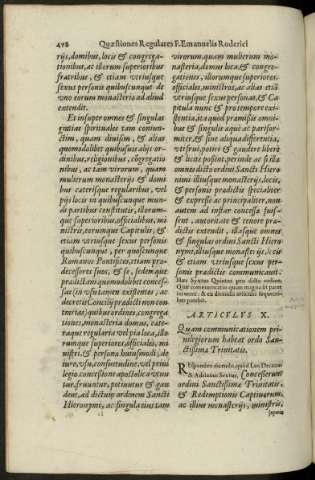 478 Quæstiones Regulares F. Emanuelis Roderici
rijs, domibus, locis & congrega-
tionibus, ac illorum superioribus
fratribus, & etiam vtriusque
sexus personis quibuscunque de
vno eorum monasterio ad aliud
extendit.
Et insuper omnes & singulas
gratias spirituales tam coniun-
ctim, quam diuisim, & alias
quomodolibet quibusuis alijs or-
dinibus, religionibus, cōgregatio
nibus, ac tam virorum, quam
mulierum monasterijs & domi
bus caterisque regularibus, vel
pijs locis in quibuscunque mun-
di partibus constitutis, illorum-
que superioribus, officialibus, mi
nistris, eorumque Capitulis, &
etiam vtriusque sexus personis
quibuscunque, per quoscunque
Romano Pontifices, etiam præ-
decessores suos, & se, sedemque
prædictam quomodolibet conces-
sas (in vsu tamen existentes, ac
decretis Concilij prædicti non con
trarias) quibus ordines, congrega
tiones, monasteria, domus, cate-
raque regularia vel pia loca, illo-
rumque superiores, officiales, mi
nistri, & persona huiusmodi, de
iure, vsu, consuetudine, vel priui
legio, concessione apostolica vtun
tur, fruuntur, potiuntur & gau
dent, ad dictum ordinem Sancti
Hieronymi, ac singula eius tam
virorum quam mulierum mo-
nasteria, domus loca, & congre-
gationes, illorumque superiores,
officiales, ministros, ac alias etiā
vtriusque sexus personas, & Ca
pitula nunc & pro tempore exi-
stentia, ita quod præmissis omni-
bus & singulis æquè ac parifor-
miter, & sine aliqua differentia,
vti, frui, potiri & gaudere liberè
& licitè possint, perinde ac si illa
omnes dicto ordini Sancti Hiero-
nymi illiusque monasterijs, locis,
& personis prædictis specialiter
& expressè ac principaliter, non
autem ad instar concessa fuis-
sent, auctoritate & tenore præ-
dictis extendit, illasque omnes
& singulas ordini Sancti Hiero-
nymi, illiusque monasterijs, locis
& etiam vtriusque sexus per-
sonis prædictis communicauit.
Hæc Syxtus Quintus pro dicto ordine.
ARTICVLVS X.
Quam communicationem pri-
uilegiorum habeat ordo San-
ctissimæ Trinitatis.
Respondeo dicendo, quòd Leo Decimus
& Adrianus Sextus, Concesserunt
ordini Sanctissimæ Trinitatis,
& Redemptionis Captiuorum,
ac illius monasterijs, ministris,